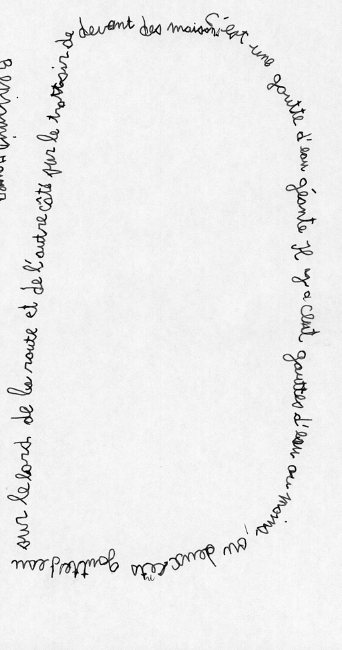 C'est une goutte d'eau géante Il y a cent gouttes d'eau au moins, ou deux cents gouttes d'eau sur le bord de la route et de l'autre côté sur le trottoir de devant des maisons